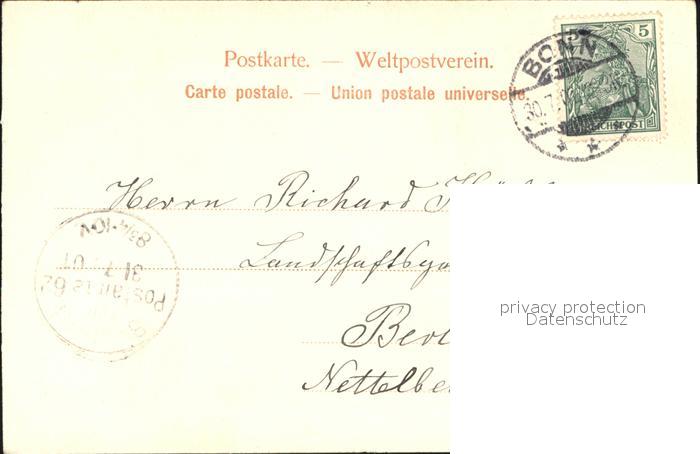 Postkarte. — Weltpostverein.
Carte postale. — Union postale universelle.
5
BONN
30.7.
REICHSPOST
Herrn Richard
Landschaftsgä
Berl
Nettelbe
8¾-10V
31.7.01
Postamt 62
privacy protection
Datenschutz